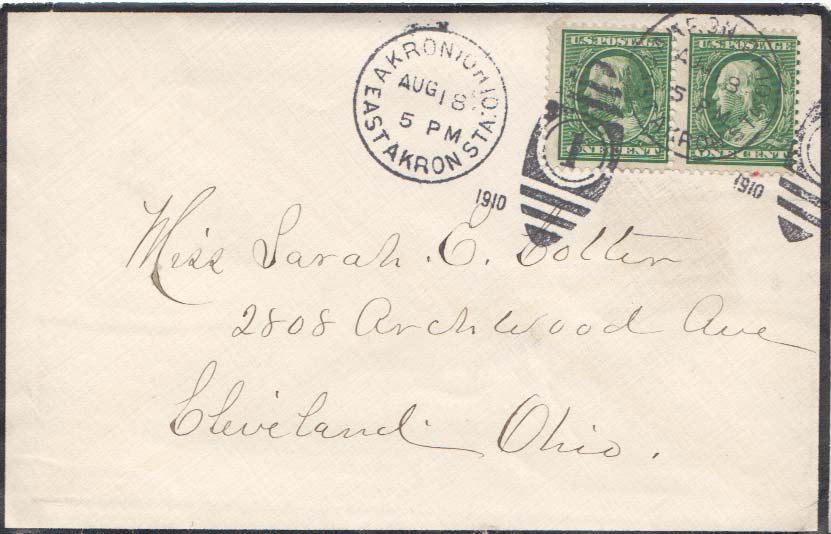 AKRON, OHIO.
AUG 18
5 PM
EAST AKRON STA.
1910
U.S. POSTAGE
ONE CENT
1
U.S. POSTAGE
ONE CENT
8
5 PM
1910
Miss Sarah. C.
2808 Archwood Ave
Cleveland Ohio.